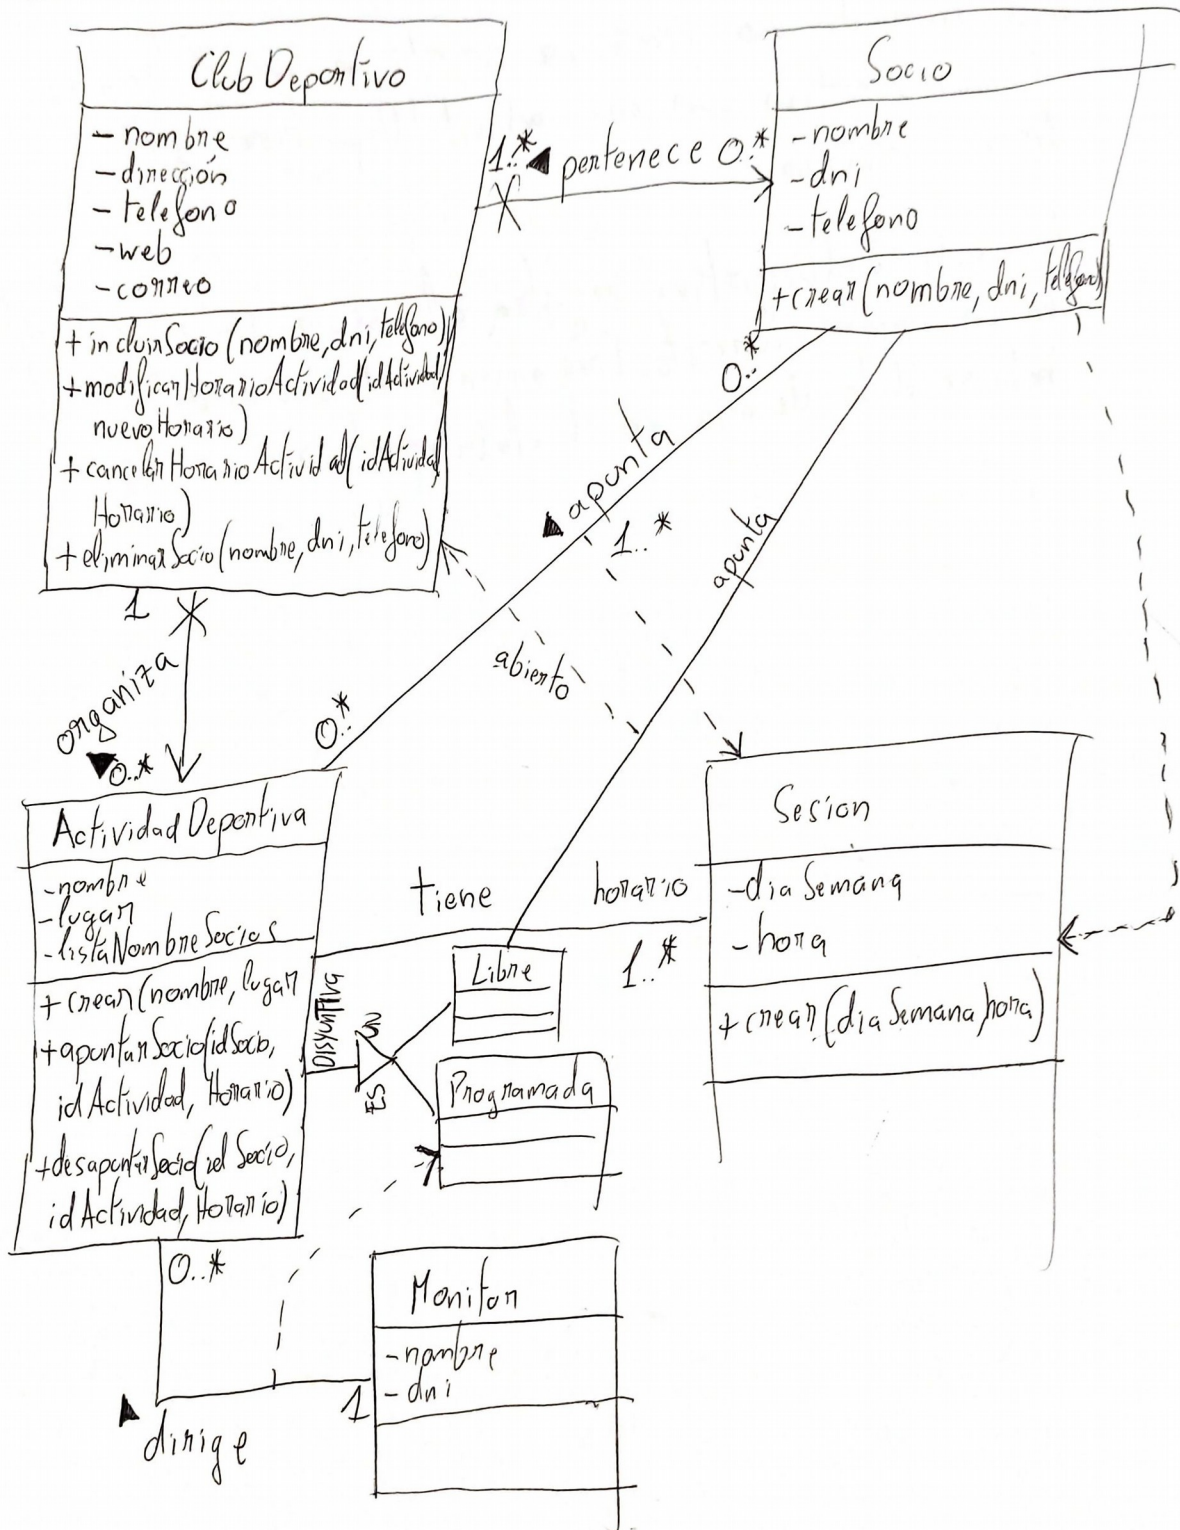 Club Deportivo
- nombre
- dirección
- telefono
- web
- correo
+ incluirSocio (nombre, dni, telefono)
+ modificarHorarioActividad (idActividad,
nuevoHorario)
+ cancelarHorarioActividad (idActividad,
Horario)
+ eliminarSocio (nombre, dni, telefono)
1..*
pertenece
0..*
Socio
- nombre
- dni
- telefono
+ crear (nombre, dni, telefono)
0..*
apunta
1..*
apunta
abierto
0..*
1
organiza
0..*
Actividad Deportiva
- nombre
- lugar
- listaNombreSocios
+ crear (nombre, lugar
+ apuntarSocio (idSocio,
idActividad, Horario)
+ desapuntarSocio (idSocio,
idActividad, Horario)
tiene
horario
1..*
Sesion
- dia Semana
- hora
+ crear (dia Semana, hora)
DISYUNTIVA
ES
UN
Libre
Programada
0..*
dirige
1
Monitor
- nombre
- dni